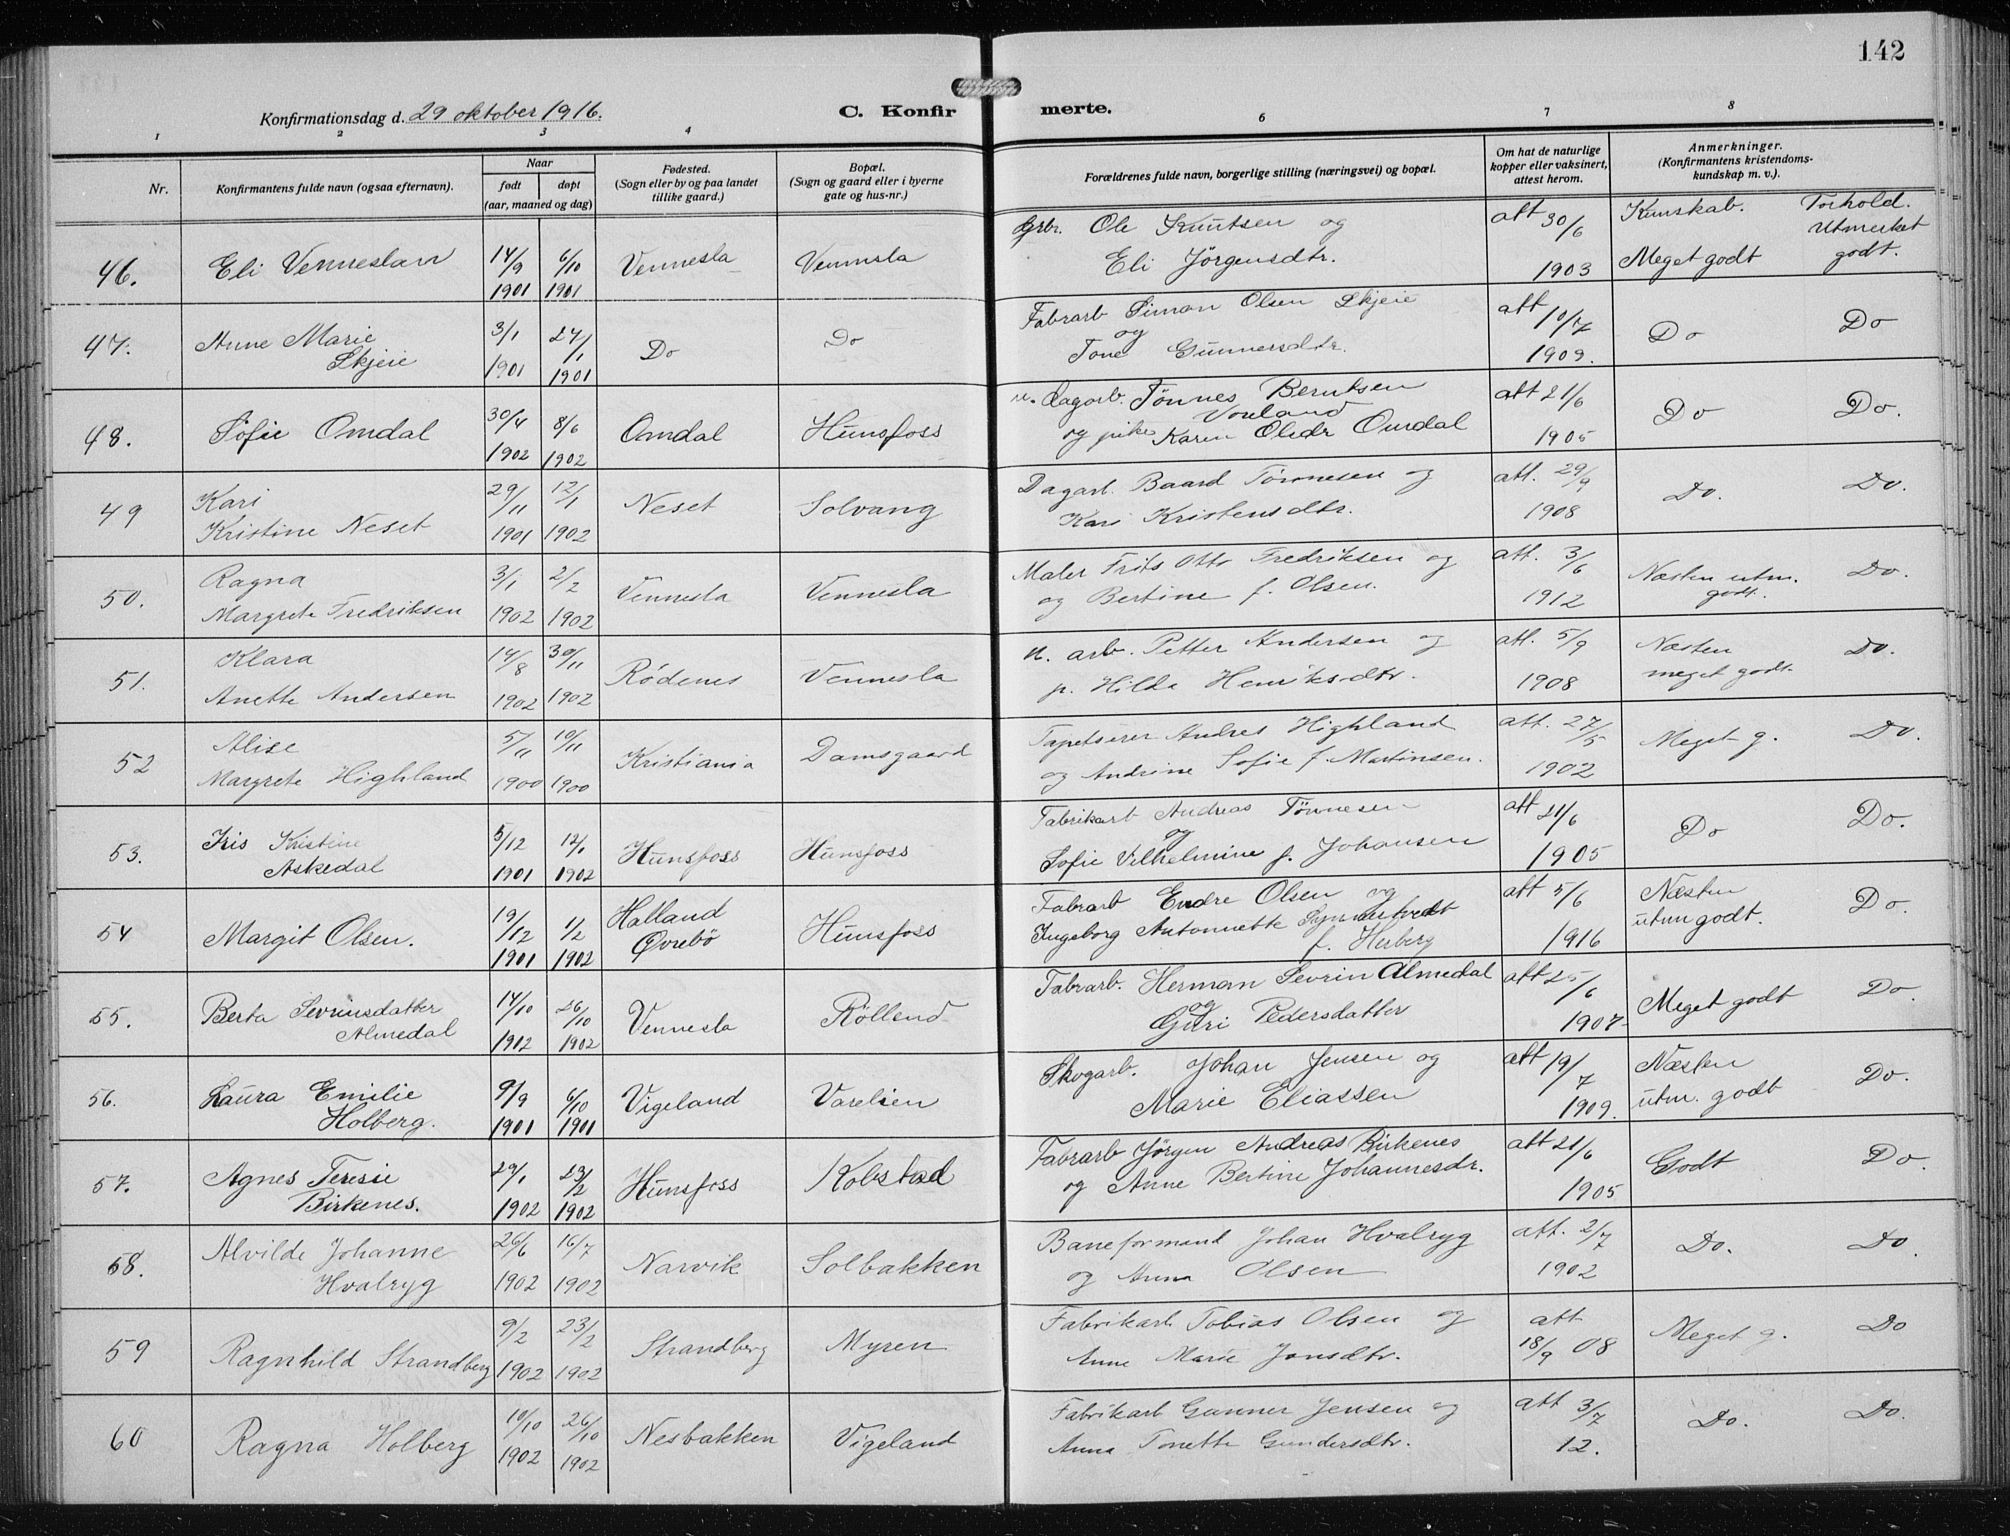 142
Konfirmationsdag d. 29 oktober 1916.
C. Konfir
merte.
1 2 3 4 6 7 8
Nr.
Konfirmantens fulde navn (ogsaa efternavn).
Naar
født døpt
(aar, maaned og dag)
Fødested.
(Sogn eller by og paa landet
tillike gaard.)
Bopæl.
(Sogn og gaard eller i byerne
gate og hus-nr.)
Forældrenes fulde navn, borgerlige stilling (næringsvei) og bopæl.
Om hat de naturlige
kopper eller vaksinert,
attest herom.
Anmerkninger.
(Konfirmantens kristendoms-
kundskap m. v.).
Kunskab. Forhold.
46. Eli Venneslan 14/9 1901 6/10 1901 Vennesla Vennesla
Grbr. Ole Knutsen og
Eli Jörgensdtr.
att 30/6 1903 Meget godt Utmerket godt.
47. Anne Marie
Skjeie 3/1 1901 27/1 1901 Do Do
Fabrarb Simon Olsen Skjeie
og
Tone Gunnersdtr.
att 10/7 1909. Do Do
48. Sofie Omdal 30/4 1902 8/6 1902 Omdal Hunsfoss
u. dagarb. Tönnes Berntsen
og pike Karen Olsdr Omdal
att 21/6 1905 Do Do.
49 Kari
Kristine Neset 29/11 1901 12/1 1902 Neset Solvang
Dagarb. Baard Tönnesen og
Kari Kristensdtr.
att. 29/9 1908 Do. Do.
50. Ragna
Margrete Fredriksen 3/1 1902 2/2 1902 Vennesla Vennesla
Maler Frits Otto Fredriksen og
og Bertine f. Olsen.
att. 3/6 1912 Næsten utm. godt. Do.
51. Klara
Anette Andersen 14/8 1902 30/11 1902 Rödenes Vennesla
u. arb. Petter Andersen og
p. Hilda Henriksdtr.
att. 5/9 1908 Næsten meget godt. Do.
52 Alise
Margrete Highland 5/11 1900 19/11 1900 Kristiania Damsgaard
Tapetserer Andres Highland
og Andrine Sofie f. Martinsen.
att. 27/5 1902 Meget g. Do.
53. Iris Kristine
Askedal 5/12 1901 12/1 1902 Hunsfoss Hunsfoss
Fabrikarb Andreas Tönnesen
og
Sofie Vilhelmine f. Johansen
att 21/6 1905 Do Do.
54 Margit Olsen. 19/12 1901 1/2 1902 Halland
Øvrebö Hunsfoss
Fabrarb Endre Olsen og
Ingeborg Antonnette
f. Herberg
att 5/6 1916 Næsten utm godt. Do.
55. Berta Sevrinsdatter
Almedal 14/10 1902 26/10 1902 Vennesla Röllend
Fabrarb. Herman Sevrin Almedal
og
Guri Pedersdatter
att 25/6 1907 Meget godt Do.
56. Laura Emilie
Holberg. 9/9 1901 6/10 1901 Vigeland Varelien
Skogarb. Johan Jensen og
Marie Eliassen
att 19/7 1909. Næsten utm. godt Do.
57. Agnes Teresie
Birkenes. 29/1 1902 23/2 1902 Hunsfoss Kobstad
Fabrarb Jörgen Andreas Birkenes
og Anne Bertine Johannesdr.
att 21/6 1905 Godt Do.
58. Alvilde Johanne
Hvalryg 26/6 1902 16/7 1902 Narvik Solbakken
Baneformand Johan Hvalryg
og Anna Olsen
att. 2/7 1902 Do. Do.
59 Ragnhild Strandberg 9/2 1902 23/2 1902 Strandberg Myren
Fabrikarb Tobias Olsen og
Anne Marie Jonsdtr.
att 18/9 08 Meget g. Do
60 Ragna Holberg 10/10 1902 26/10 1902 Nesbakken Vigeland
Fabrikarb Gunner Jensen og
Anna Tonette Gundersdtr.
att 3/7 12. Do. Do.